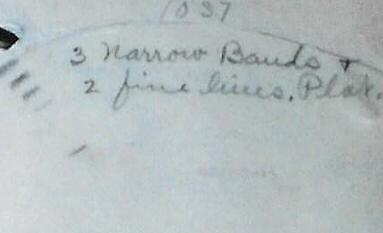 1037
3 Narrow Bands +
2 fine lines. Plat.